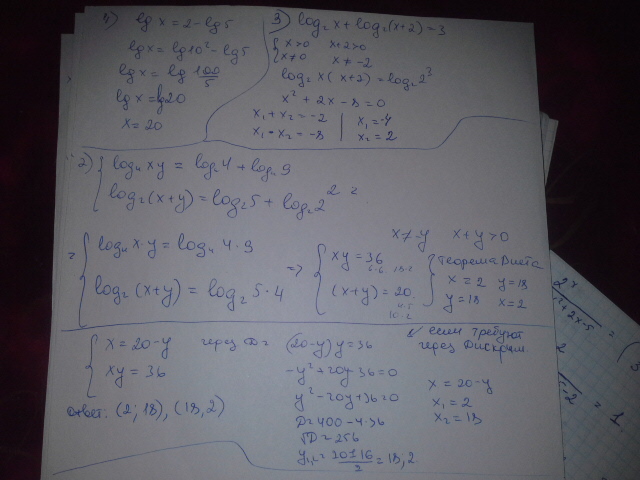 1) lg x = 2 - lg 5
lg x = lg 10² - lg 5
lg x = lg 100/5
lg x = lg 20
x = 20
3) log₂ x + log₂ (x+2) = 3
{ x>0 x+2>0
x≠0 x≠-2
log₂ x (x+2) = log₂ 2³
x² + 2x - 8 = 0
x₁ + x₂ = -2 | x₁ = -4
x₁ · x₂ = -8 | x₂ = 2
2) { log₄ xy = log₄ 4 + log₄ 9
log₂ (x+y) = log₂ 5 + log₂ 2² =
= { log₄ x·y = log₄ 4·9
log₂ (x+y) = log₂ 5·4
x≠-y x+y>0
=> { xy = 36
6·6 18·2
(x+y) = 20
10·2
} теорема Виета
x = 2 y = 18
y = 18 x = 2
{ x = 20-y
xy = 36
ответ: (2; 18), (18, 2)
через D =
(20-y) y = 36
-y² + 20y - 36 = 0
y² - 20y + 36 = 0
D = 400 - 4·36
√D = 256
y₁,₂ = 20±16/2 = 18, 2
если требуют
через Дискрим.
x = 20-y
x₁ = 2
x₂ = 18